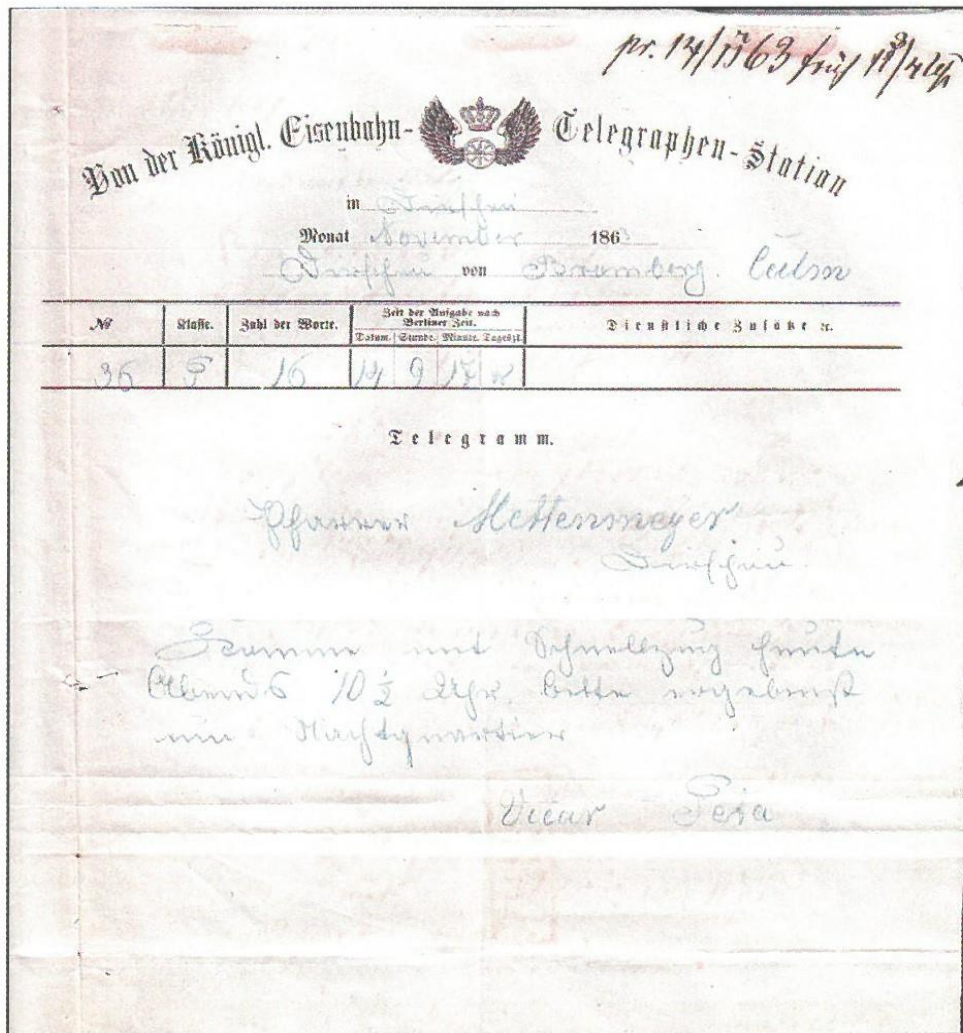 pr. 14/11 63 früh 11 3/4 Uhr
Von der Königl. Eisenbahn-Telegraphen-Station
in Dirschau
Monat November 1863
Dirschau von Bromberg. Culm
No Klasse. Zahl der Worte. Zeit der Aufgabe nach Berliner Zeit. Dienstliche Zusätze ec.
Datum. Stunde. Minute. Tageszt.
36 P 16 14 9 17
Telegramm.
Pfarrer Mettenmeyer
Dirschau.
Komme mit Schnellzug heute
Abends 10 1/2 Uhr. bitte ergebenst
um Nachtquartier
Vicar